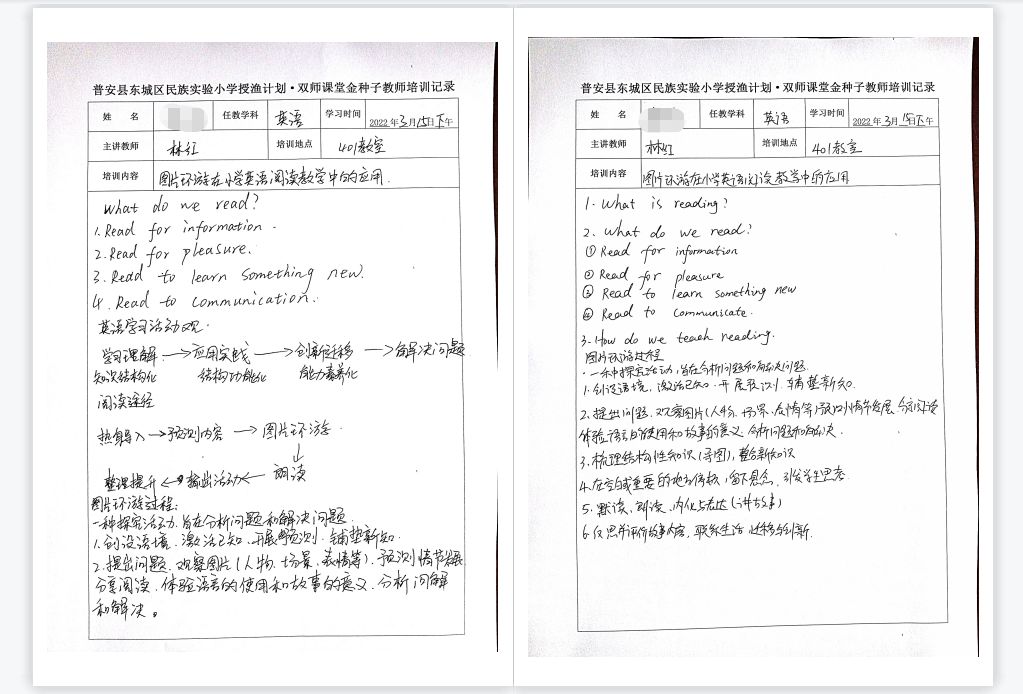 普安县东城区民族实验小学授渔计划·双师课堂金种子教师培训记录
姓 名 任教学科 英语 学习时间 2022年3月15日下午
主讲教师 林红 培训地点 401教室
培训内容 图片环游在小学英语阅读教学中的应用.
What do we read?
1. Read for information.
2. Read for pleasure.
3. Read to learn something new.
4. Read to communication.
英语学习活动观.
学习理解 → 应用实践 → 创新迁移 → 解决问题
知识结构化 结构功能化 能力素养化
阅读途径
热身导入 → 预测内容 → 图片环游.
↓
整理提升 ← 输出活动 ← 朗读
图片环游过程:
一种探究活动.旨在分析问题和解决问题.
1.创设语境,激活已知.开展预测.铺垫新知.
2.提出问题.观察图片(人物.场景.表情等).预测情节发展.
分享阅读.体验语言的使用和故事的意义.分析问解
和解决。
普安县东城区民族实验小学授渔计划·双师课堂金种子教师培训记录
姓 名 任教学科 英语 学习时间 2022年3月15日下午
主讲教师 林红 培训地点 401教室
培训内容 图片环游在小学英语阅读教学中的应用
1. What is reading?
2. What do we read?
① Read for information
② Read for pleasure
③ Read to learn something new
④ Read to communicate.
3. How do we teach reading.
图片环游过程
·一种探究活动,旨在分析问题和解决问题.
1.创设语境,激活已知.开展预测.铺垫新知.
2.提出问题.观察图片(人物.场景.表情等)预测情节发展.分享阅读
体验语言的使用和故事的意义.分析问题和解决.
3.梳理结构性知识(导图),整合新知识
4.在空或重要的地方停顿,留下悬念,引发学生思考
5.默读、朗读、内化与表达(讲故事)
6.反思并评价故事内容,联系生活,迁移与创新.